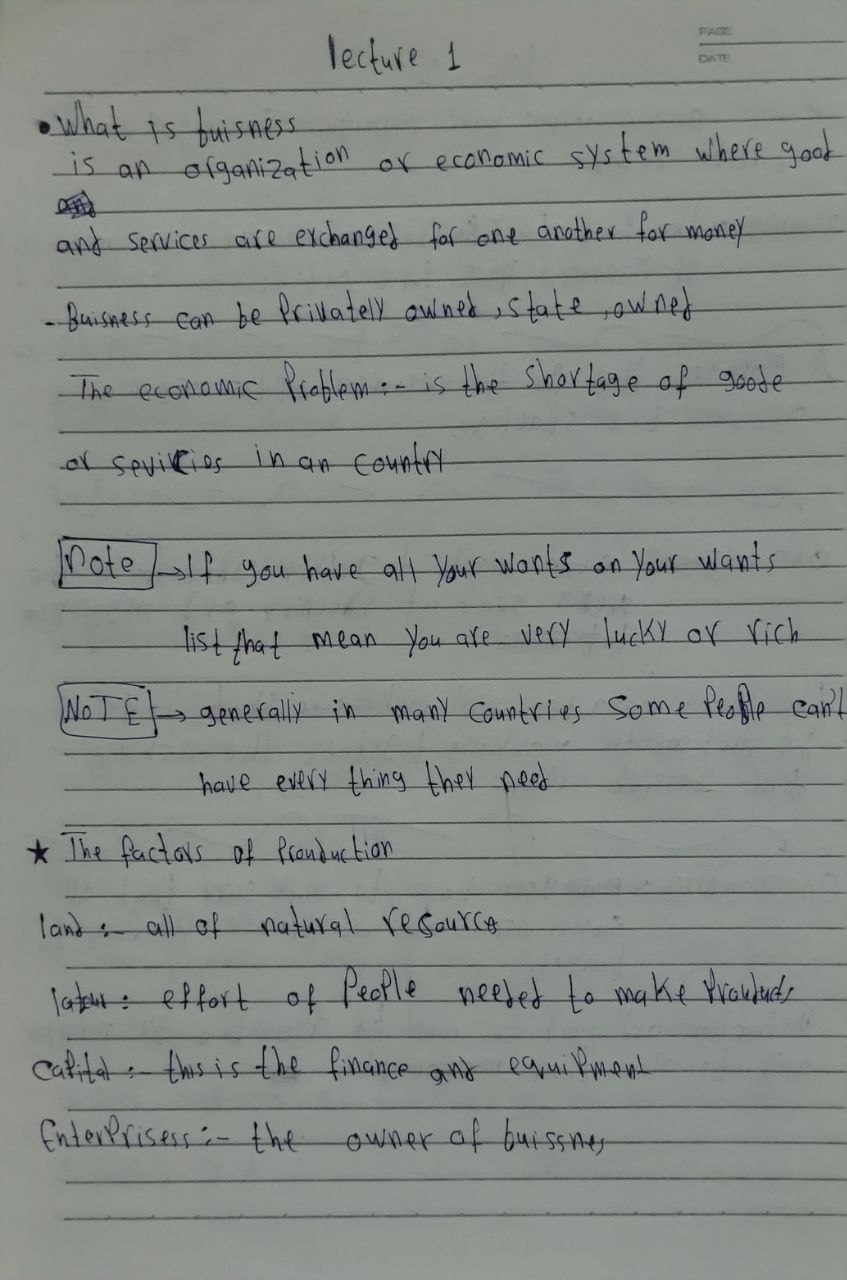 PAGE
DATE
lecture 1
• What is buisness
is an organization or economic system where good
and services are exchanged for one another for money
- Buisness can be Privately owned , state , owned
The economic Problem :- is the shortage of goode
or sevircies in an country
Note → If you have all your wants on your wants
list that mean you are very lucky or rich
NOTE → generally in many countries some People can't
have every thing they need
★ The factors of Prouduction
land :- all of natural resource
labour : effort of People needed to make Prouducts
Capital :- this is the finance and equipment
EnterPrisess :- the owner of buissnes